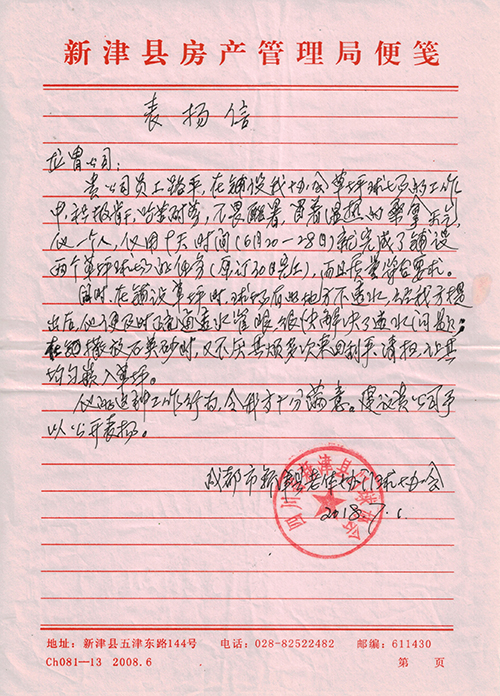 新津县房产管理局便笺
表扬信
公司：
贵公司员工路平，在铺设我协会草坪球场的工作
中，积极肯干，吃苦耐劳，不畏酷暑，冒着湿热的桑拿天气，
仅一个人，仅用十天时间（6月20—28日）就完成了铺设
两个草坪球场的任务（原订30日完工），而且质量符合要求。
同时，在铺设草坪时，球场有些地方不透水，经我方提
出后，他又及时疏通透水管眼，很快解决了透水问题；
在播放石英砂时，又不厌其烦多次来回刮平、清扫，让其
均匀嵌入草坪。
他的这种工作行为，令我方十分满意。建议贵公司予
以公开表扬。
成都市新津县老体协门球协会
2018.7.1.
地址：新津县五津东路144号 电话：028-82522482 邮编：611430
Ch081—13 2008.6 第 页